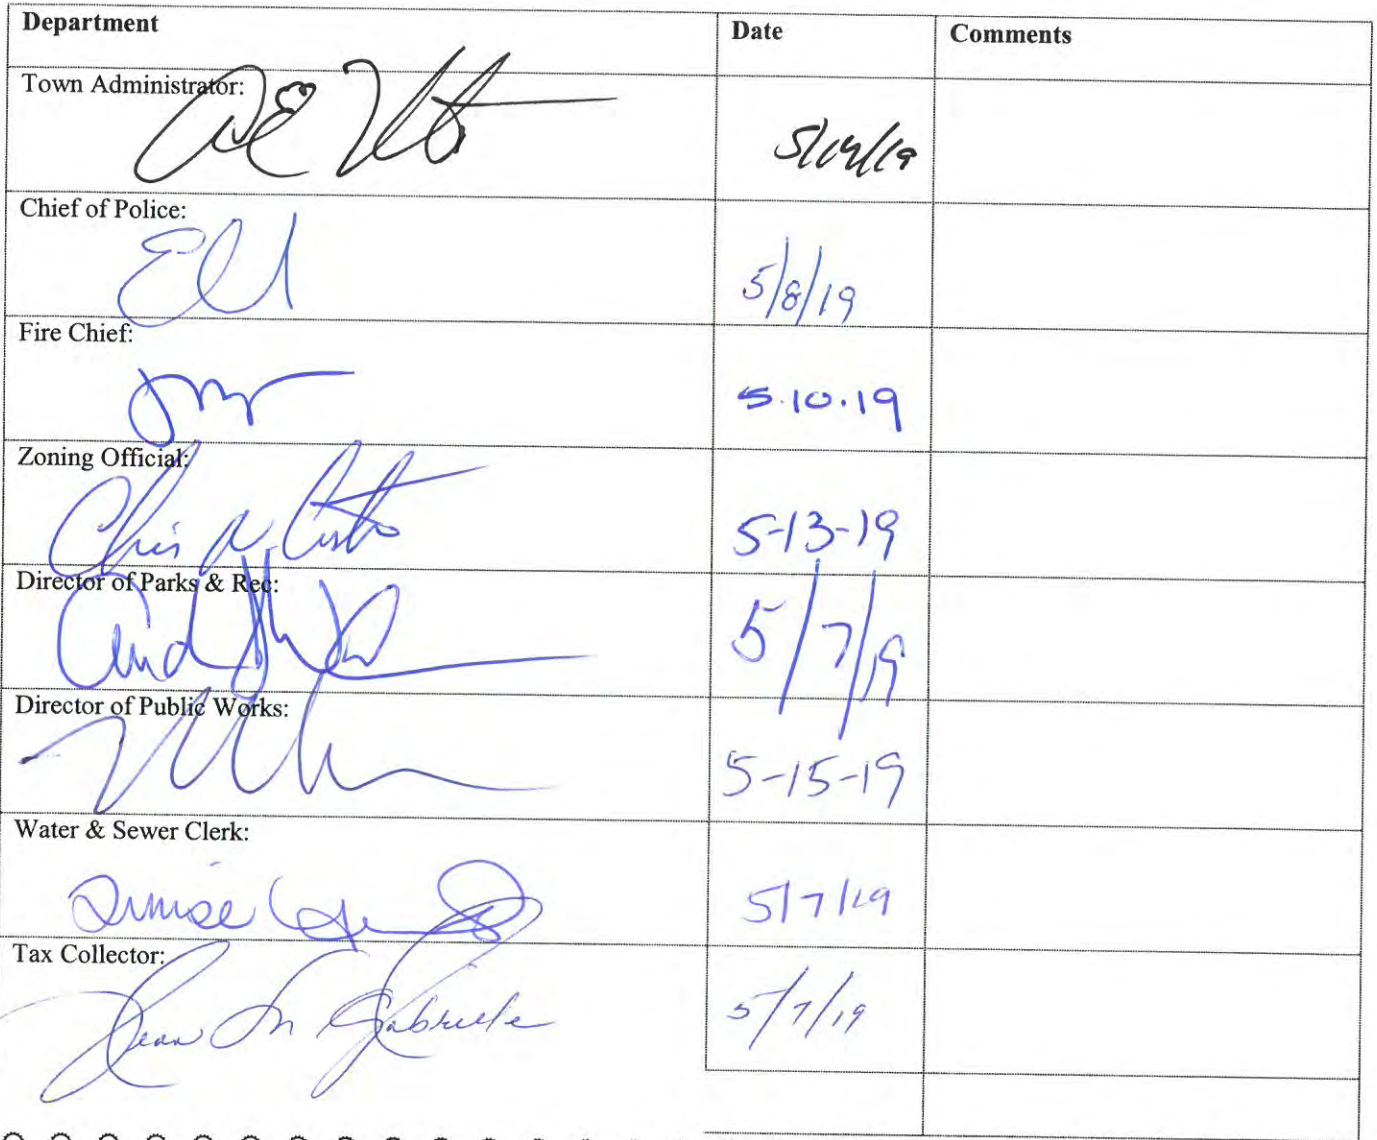 Department Date Comments
Town Administrator:
5/14/19
Chief of Police:
5/8/19
Fire Chief:
5.10.19
Zoning Official:
Chris N. Costa 5-13-19
Director of Parks & Rec:
5/7/19
Director of Public Works:
5-15-19
Water & Sewer Clerk:
Denise 5/7/19
Tax Collector:
Jean M Gabriele 5/7/19